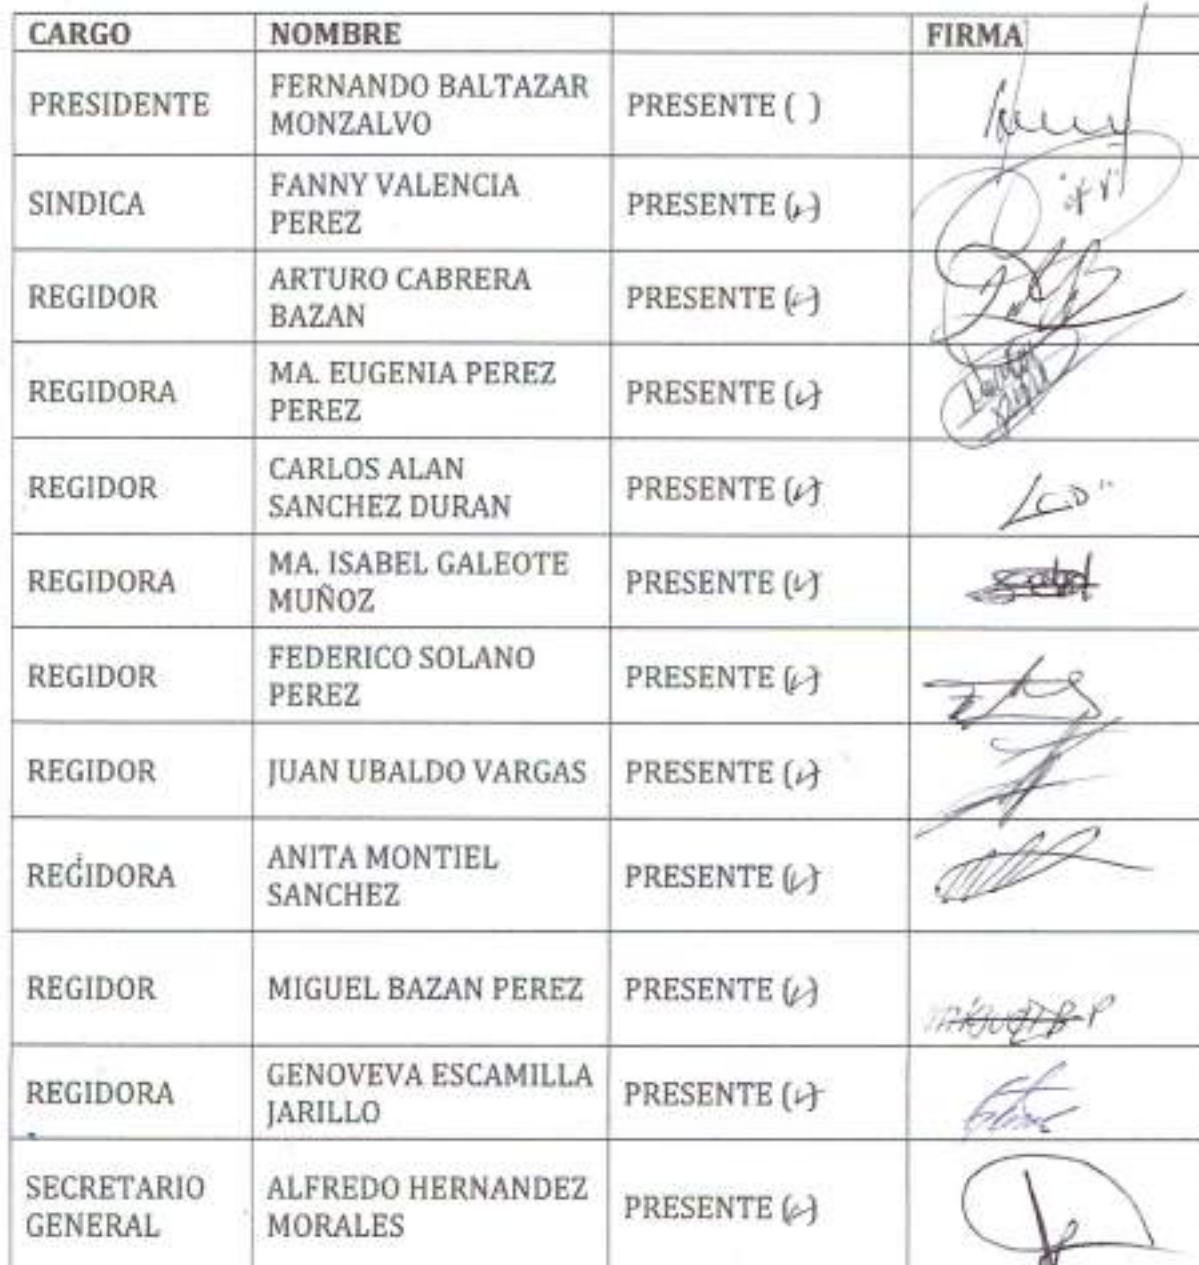 CARGO NOMBRE FIRMA
PRESIDENTE FERNANDO BALTAZAR MONZALVO PRESENTE ( )
SINDICA FANNY VALENCIA PEREZ PRESENTE (✓)
REGIDOR ARTURO CABRERA BAZAN PRESENTE (✓)
REGIDORA MA. EUGENIA PEREZ PEREZ PRESENTE (✓)
REGIDOR CARLOS ALAN SANCHEZ DURAN PRESENTE (✓)
REGIDORA MA. ISABEL GALEOTE MUÑOZ PRESENTE (✓)
REGIDOR FEDERICO SOLANO PEREZ PRESENTE (✓)
REGIDOR JUAN UBALDO VARGAS PRESENTE (✓)
REGIDORA ANITA MONTIEL SANCHEZ PRESENTE (✓)
REGIDOR MIGUEL BAZAN PEREZ PRESENTE (✓)
REGIDORA GENOVEVA ESCAMILLA JARILLO PRESENTE (✓)
SECRETARIO GENERAL ALFREDO HERNANDEZ MORALES PRESENTE (✓)